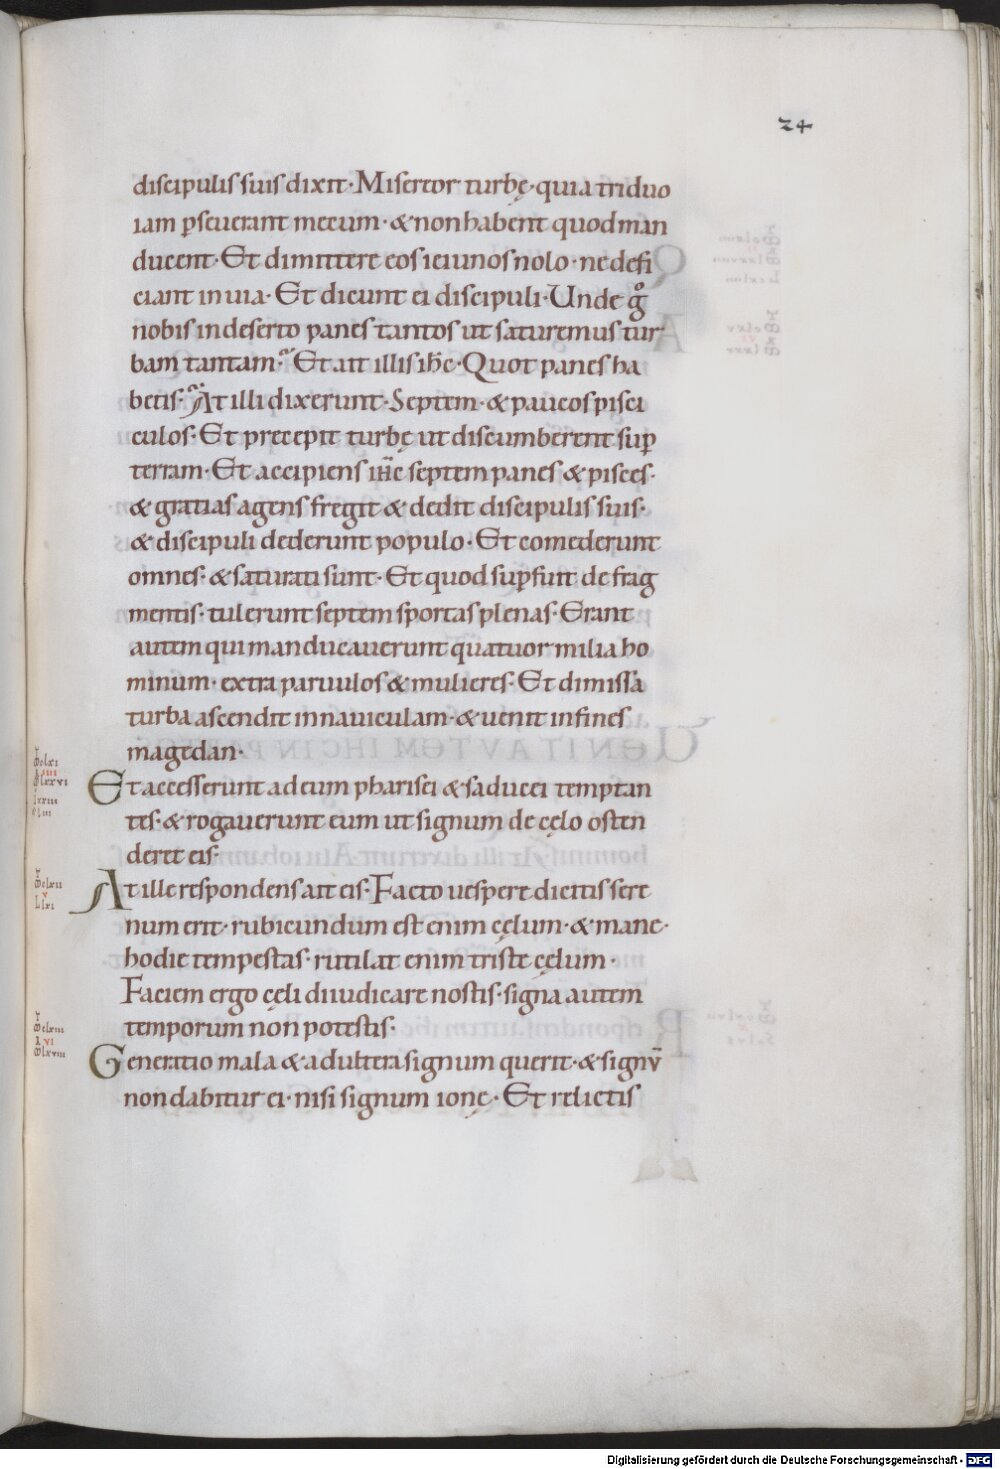 24
discipulis suis dixit· Misereor turbę· quia triduo
iam p̱seuerant mecum· & non habent quod man
ducent· Et dimittere eos ieiunos nolo· ne defi
ciant in uia· Et dicunt ei discipuli· Unde gͦ
nobis in deserto panes tantos ut saturemus tur
bam tantam· Et ait illis ihc̄· Quot panes ha
betis· At illi dixerunt· Septem· & paucos pisci
culos· Et precepit turbę ut discumberent sup̱
terram· Et accipiens ihc̄ septem panes & pisces·
& gratias agens fregit & dedit discipulis suis·
& discipuli dederunt populo· Et comederunt
omnes· & saturati sunt· Et quod sup̱fuit de frag
mentis· tulerunt septem sportas plenas· Erant
autem qui manducauerunt quatuor milia ho
minum· extra paruulos & mulieres· Et dimissa
turba ascendit in nauiculam· & uenit in fines
magedan·
Et accesserunt ad eum pharisei & saducei temptan
tes· & rogauerunt eum ut signum de cęlo osten
deret eis·
At ille respondens ait eis· Facto uespere dicitis sere
num erit· rubicundum est enim cęlum· & mane·
hodie tempestas· rutilat enim triste cęlum·
Faciem ergo cęli diiudicare nostis· signa autem
temporum non potestis·
Generatio mala & adultera signum querit· & signū
non dabitur ei· nisi signum ionę· Et relictis
Digitalisierung gefördert durch die Deutsche Forschungsgemeinschaft - DFG